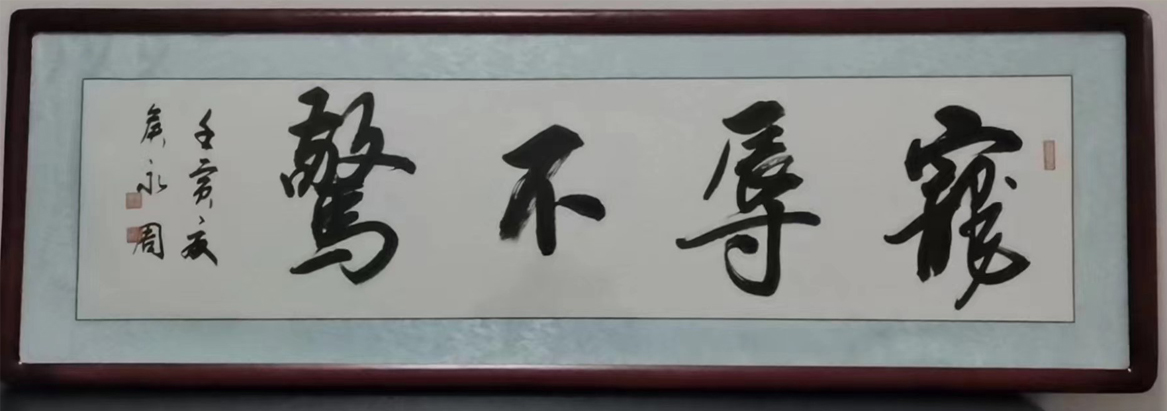 寵辱不驚
壬寅夏
侯永周